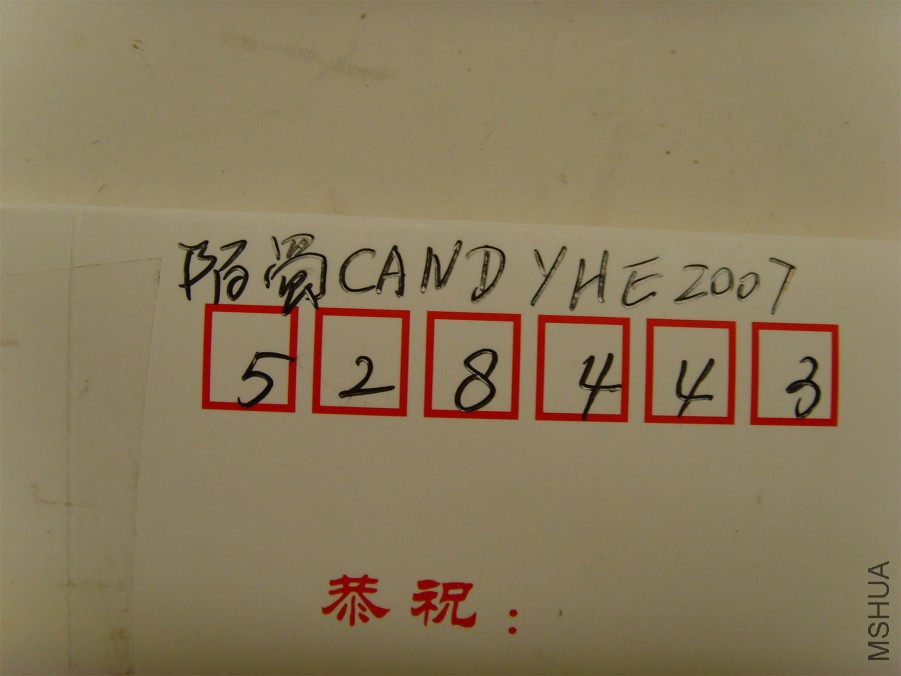 陌蜀CANDYHE2007
528443
恭祝：
MSHUA